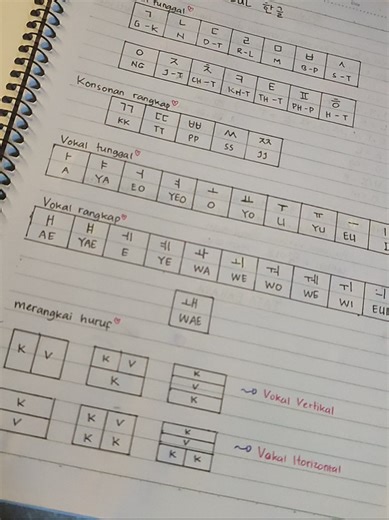 한글
tunggal
ㄱ ㄴ ㄷ ㄹ ㅁ ㅂ ㅅ
G-K N D-T R-L M B-P S-T
ㅇ ㅈ ㅊ ㅋ ㅌ ㅍ ㅎ
NG J-T CH-T KH-T TH-T PH-P H-T
Konsonan rangkap
ㄲ ㄸ ㅃ ㅆ ㅉ
KK TT PP SS JJ
Vokal tunggal
ㅏ ㅑ ㅓ ㅕ ㅗ ㅛ ㅜ ㅠ ㅡ
A YA EO YEO O YO U YU EU
Vokal rangkap
ㅐ ㅒ ㅔ ㅖ ㅘ ㅚ ㅝ ㅞ ㅟ ㅢ
AE YAE E YE WA WE WO WE WI
ㅙ
WAE
merangkai huruf
K V K V K
K V
K
Vokal Vertikal
K K V K
V K K V
K K
Vokal Horizontal